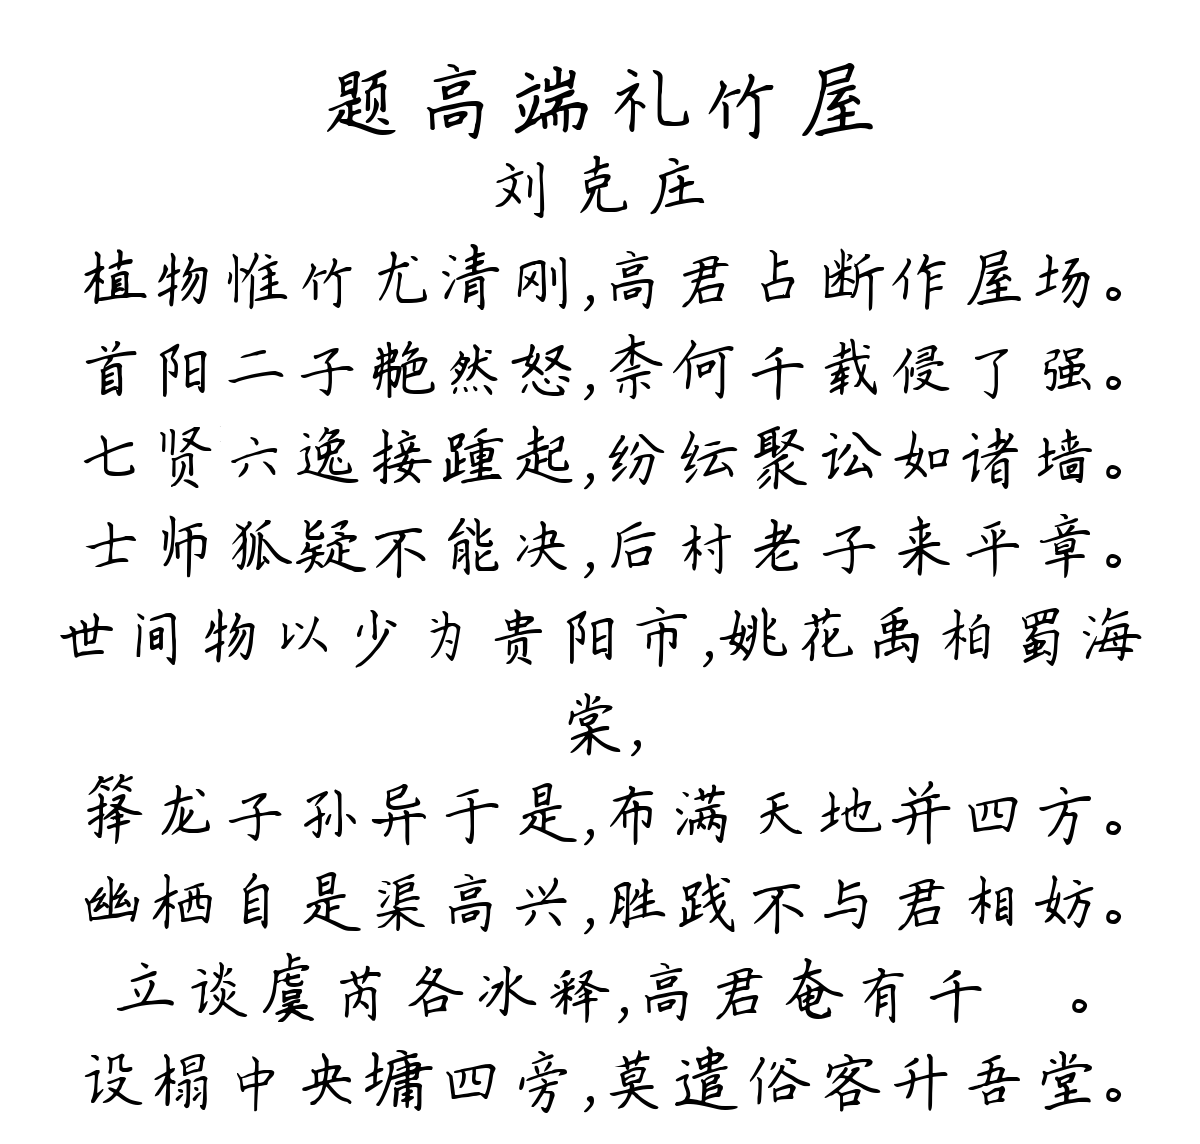 题高端礼竹屋
刘克庄
植物惟竹尤清刚,高君占断作屋场。
首阳二子艴然怒,柰何千载侵了强。
七贤六逸接踵起,纷纭聚讼如诸墙。
士师狐疑不能决,后村老子来平章。
世间物以少为贵阳市,姚花禹柏蜀海
棠,
箨龙子孙异于是,布满天地并四方。
幽栖自是渠高兴,胜践不与君相妨。
立谈虞芮各冰释,高君奄有千 。
设榻中央墉四旁,莫遣俗客升吾堂。